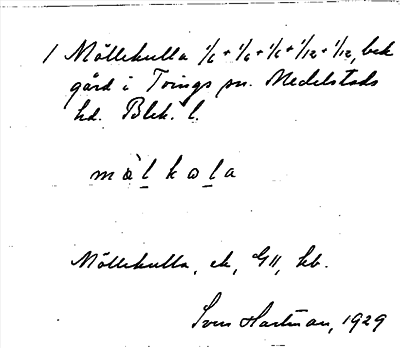 1 Möllekulla 1/6 + 1/6 + 1/6 + 1/12 + 1/12, bek
gård i Tvings sn. Medelstads
hd. Blek. l.
mö̀lkωla
Möllekulla, ek, G11, hb.
Sven Hartman, 1929